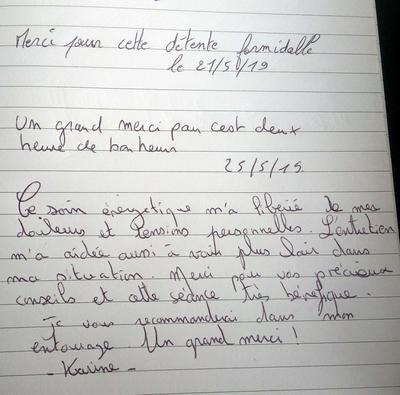 Merci pour cette détente formidable
le 21/5/19
Un grand merci pour cest deux
heure de bonheur
25/5/19.
Ce soin énergétique m'a libérée de mes
douleurs et tensions personnelles. L'entretien
m'a aidée aussi à voir plus clair dans
ma situation. Merci pour vos précieux
conseils et cette séance très bénéfique.
Je vous recommanderai dans mon
entourage Un grand merci !
- Karine -